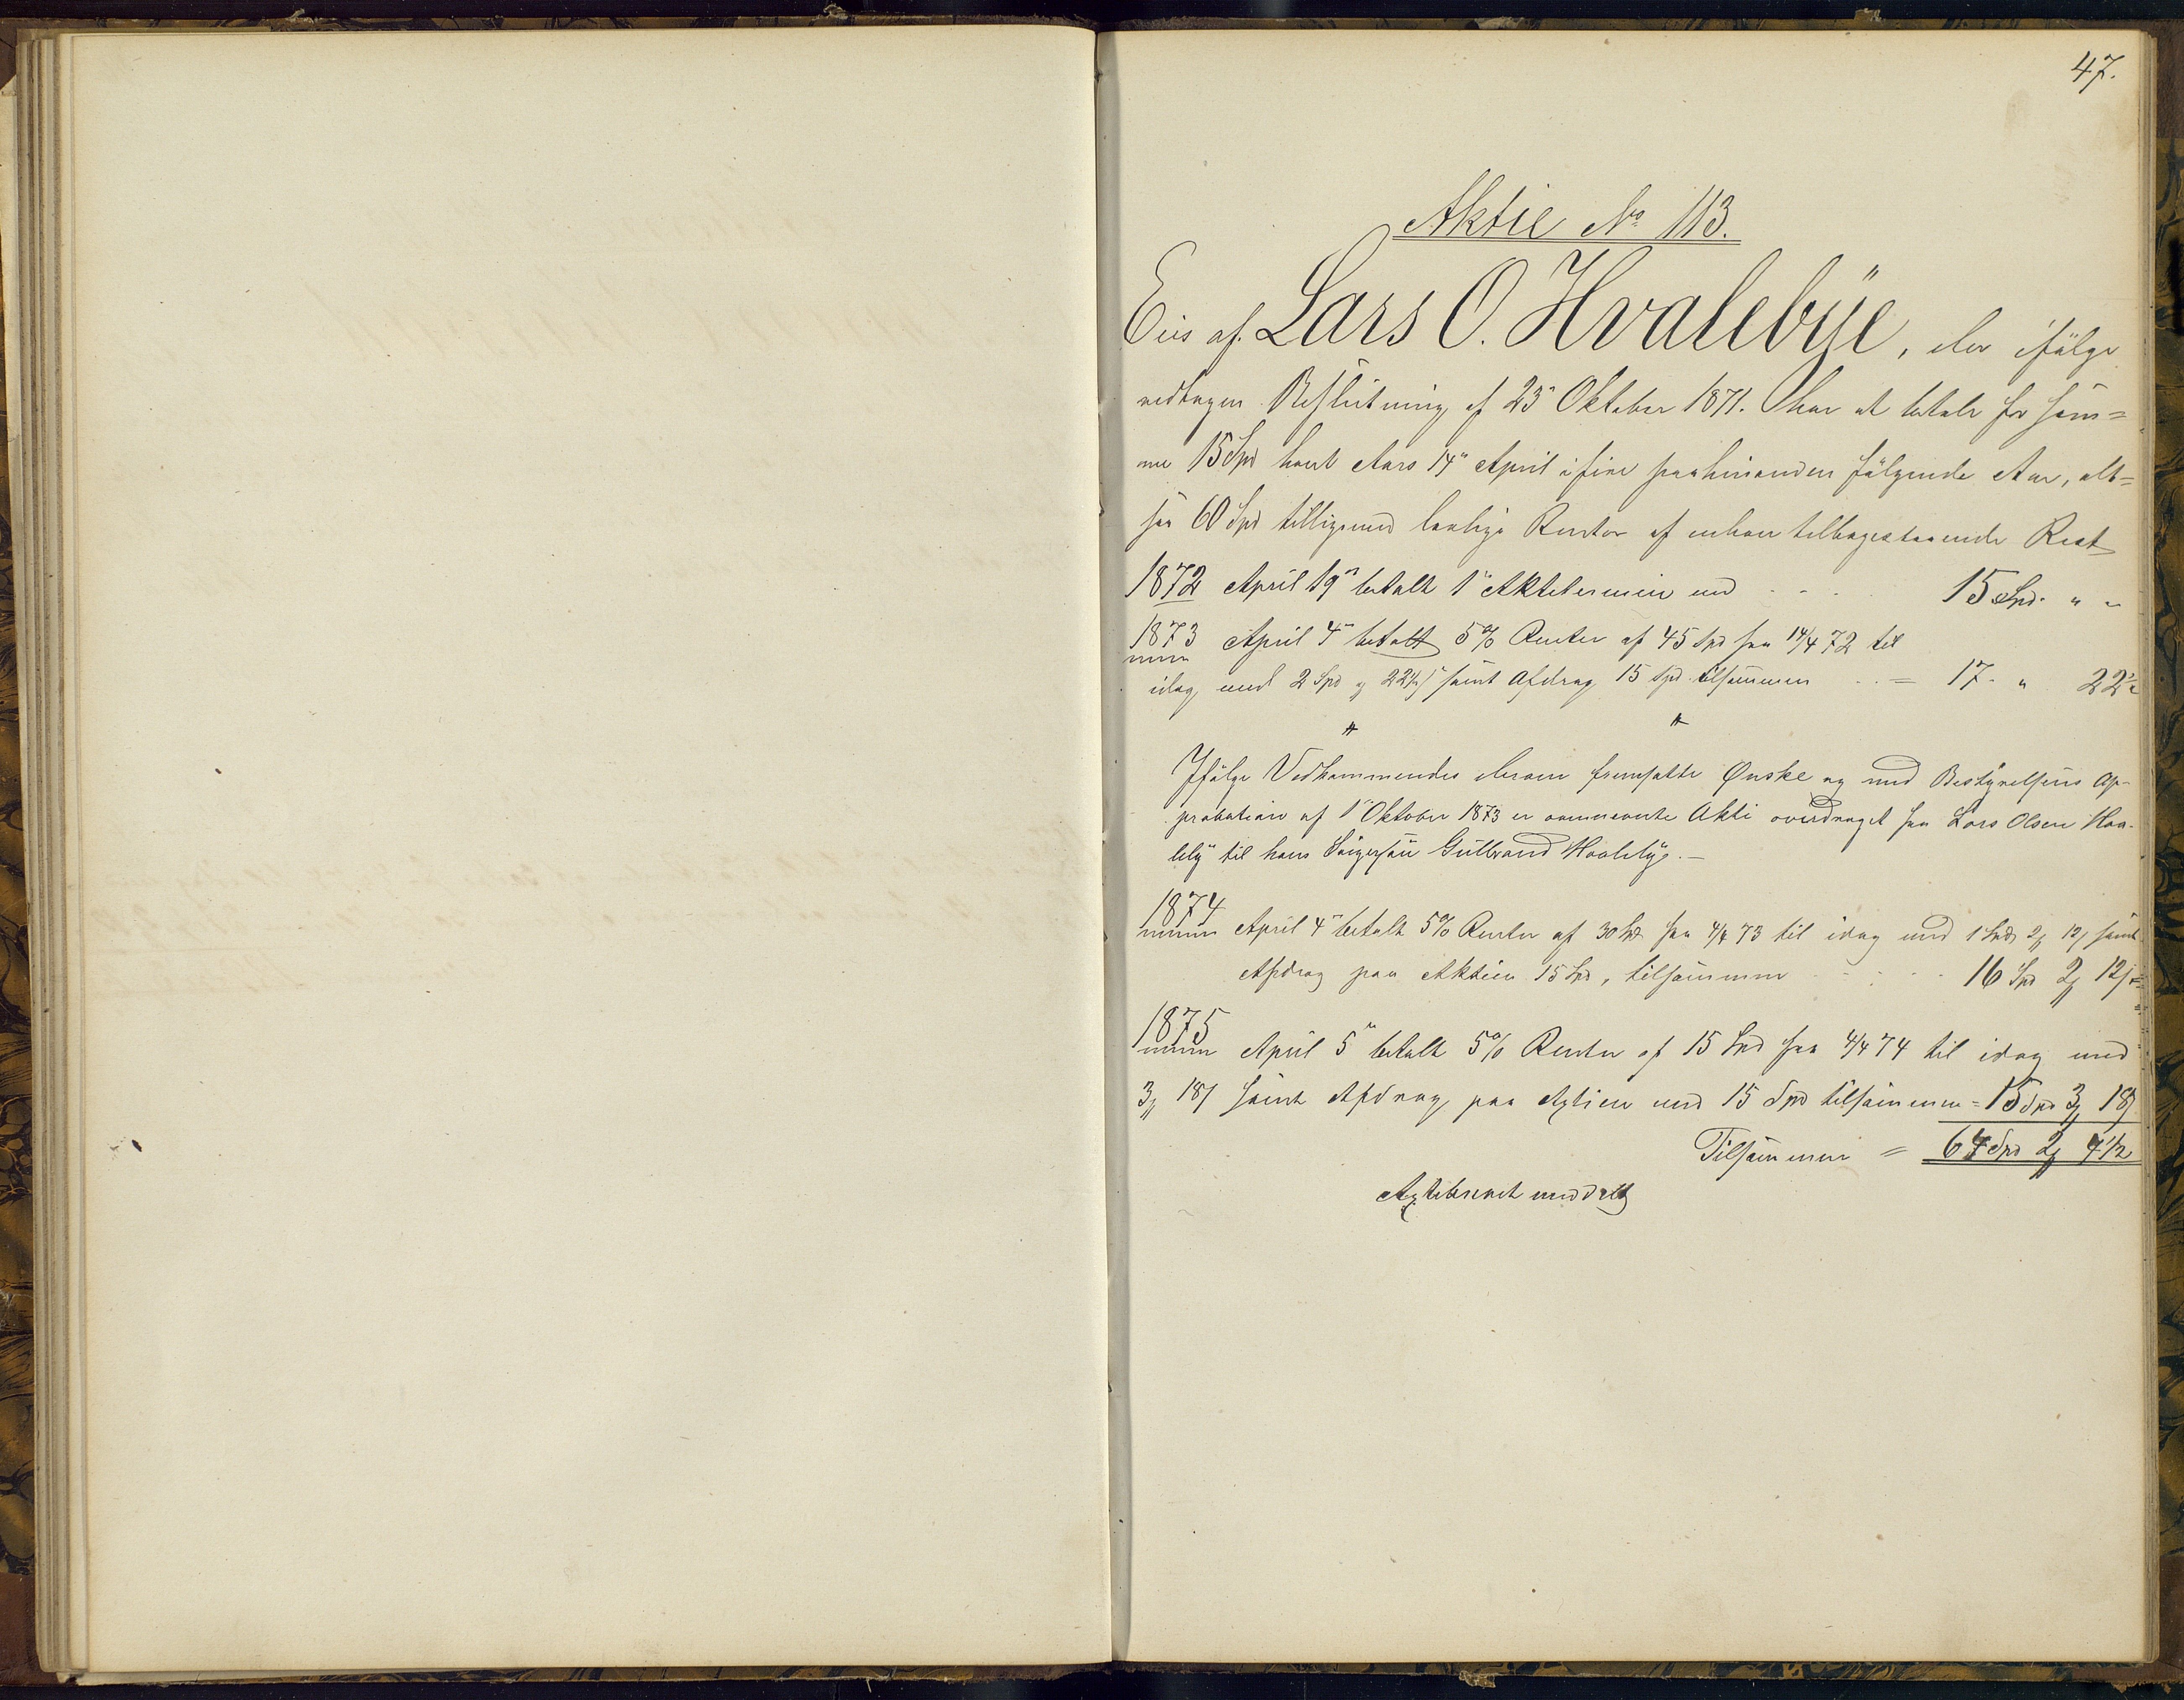 47.
Aktie No 113.
Eies af Lars O. Hvalebÿe, der ifølge
vedtagen Beslutning af 23" Oktober 1871 har at betale for sam=
me 15 Spd hvert Aars 14" April i fire paahinanden følgende Aar, alt=
saa 60 Spd tilligemed lovlige Renter af enhver tilbagestaaende Rest
1872 April 19" betalt 1" Aktietermin med - - - 15 Spd. " "
1873 April 4" betalt 5% Renter af 45 Spd fra 14/4 72 til
idag med 2 Spd og 22½ s samt Afdrag 15 Spd tilsammen - - = 17 - " 22½
" "
Ifølge Vedkommendes derom fremsatte Ønske og med Bestyrelsens Ap-
probation af 1" Oktober 1873 er ovennævnte Aktie overdraget fra Lars Olsen Hva-
leby til hans Svigersøn Gulbrand Hvalebye. -
1874 April 4" betalt 5% Renter af 30 Spd fra 4/4 73 til idag med 1 Spd 2 12 s samt
Afdrag paa Aktien 15 Spd, tilsammen - - - - 16 Spd 2 12 s =
1875 April 5" betalt 5% Renter af 15 Spd fra 4/4 74 til idag med
3 18 s samt Afdrag paa Aktien med 15 Spd tilsammen = 15 Spd 3 18 s
Tilsammen = 64 Spd 2 4½